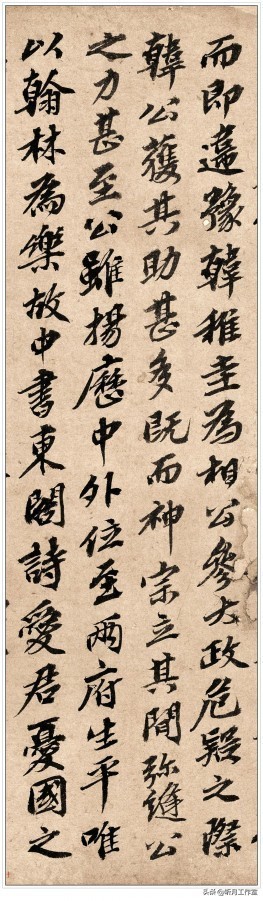 而即違豫韓稚圭為相公參大政危疑之際
韓公獲其助甚多既而神宗立其間弥縫公
之力甚至公雖揚歷中外位至兩府生平唯
以翰林為樂故中書東閣詩愛君憂國之
头条@昕月工作室